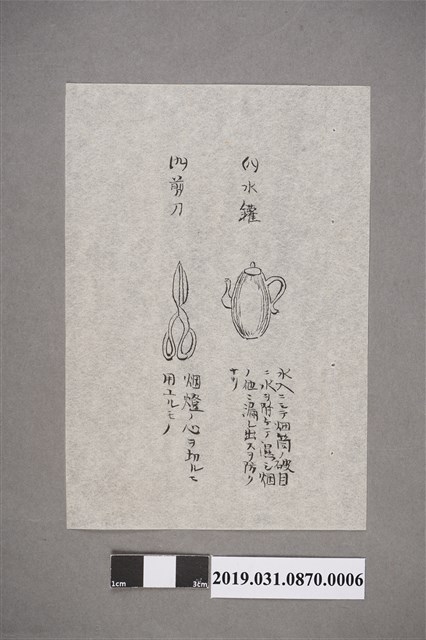 水罐
水入ニシテ烟筒ノ破目
ニ水ヲ附ケテ湿シ烟
ノ他ニ漏レ出スヲ防グ
ナリ
剪刀
烟燈ノ心ヲ切ルニ
用ユルモノ
1cm
3cm
2019.031.0870.0006